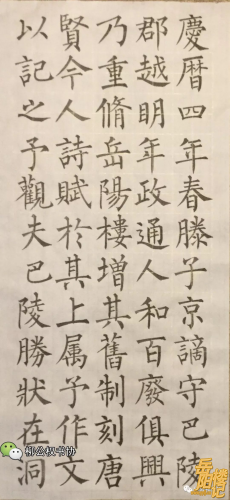 慶曆四年春滕子京謫守巴陵
郡越明年政通人和百廢俱興
乃重脩岳陽樓增其舊制刻唐
賢今人詩賦於其上属予作文
以記之予觀夫巴陵勝狀在洞
柳公权书协
岳阳楼记